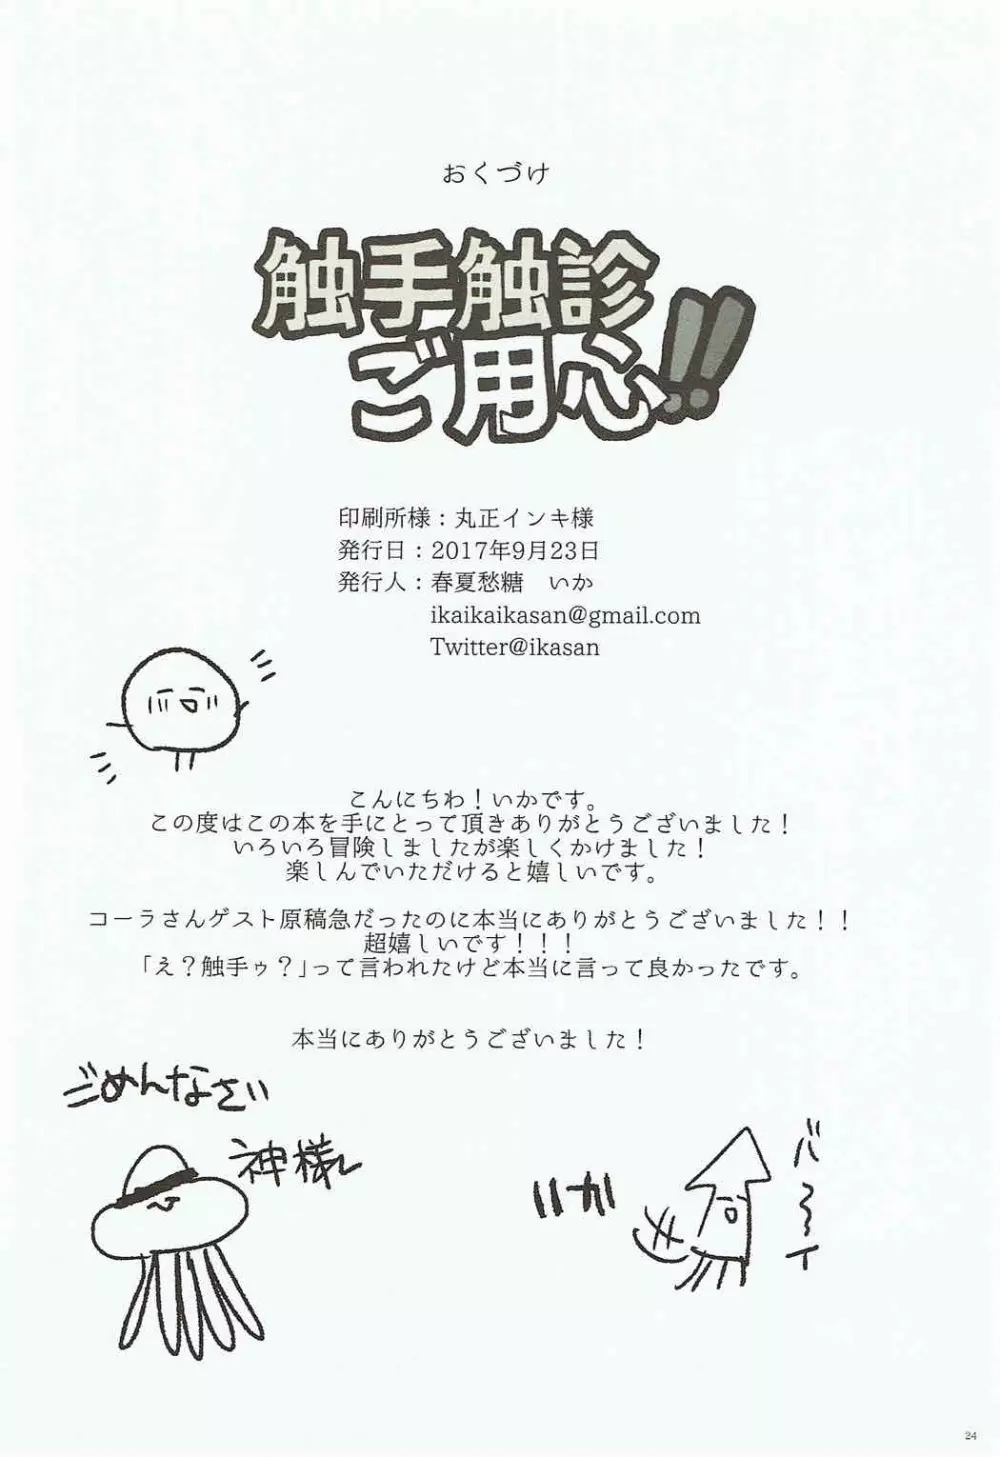 おくづけ
触手触診
ご用心!!
印刷所様：丸正インキ様
発行日：2017年9月23日
発行人：春夏愁糖　いか
ikaikaikasan@gmail.com
Twitter@ikasan
こんにちわ！いかです。
この度はこの本を手にとって頂きありがとうございました！
いろいろ冒険しましたが楽しくかけました！
楽しんでいただけると嬉しいです。
コーラさんゲスト原稿急だったのに本当にありがとうございました！！
超嬉しいです！！！
「え？触手ゥ？」って言われたけど本当に言って良かったです。
本当にありがとうございました！
ごめんなさい
神様
いか
バーイ
24